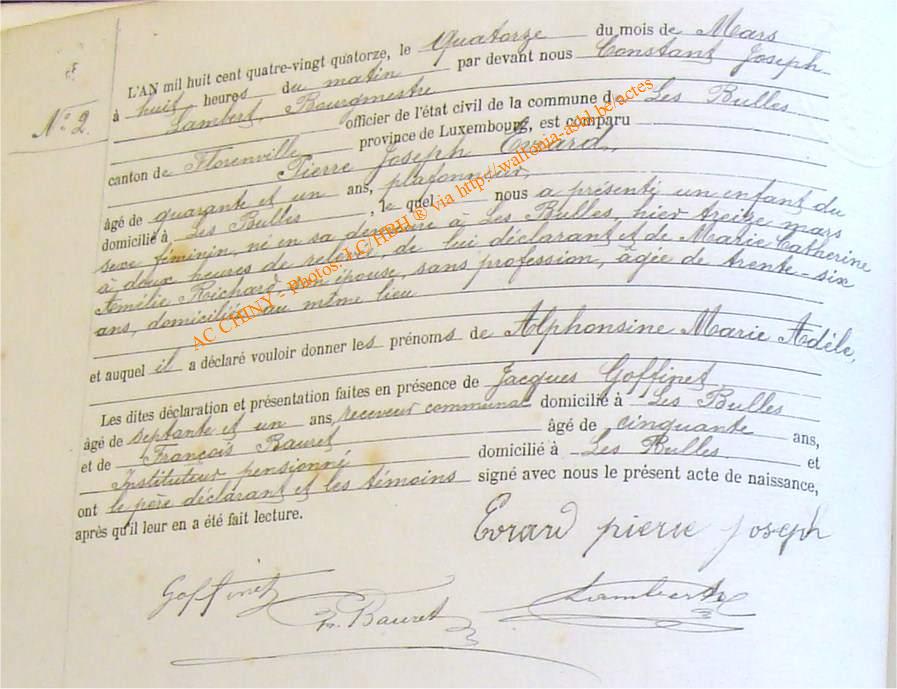 N° 2.
L'AN mil huit cent quatre-vingt quatorze, le quatorze du mois de Mars
à huit heures du matin par devant nous Constant Joseph
Lambert, Bourgmestre officier de l'état civil de la commune de Les Bulles
canton de Florenville province de Luxembourg, est comparu
Pierre Joseph Evrard,
âgé de quarante et un ans, plafonneur,
domicilié à Les Bulles, le quel nous a présenté un enfant du
sexe féminin, né en sa demeure à Les Bulles, hier treize mars
à deux heures de relevée, de lui déclarant et de Marie Catherine
Emilie Richard son épouse, sans profession, âgée de trente-six
ans, domiciliée au même lieu
et auquel il a déclaré vouloir donner les prénoms de Alphonsine Marie Adèle,
Les dites déclaration et présentation faites en présence de Jacques Goffinet,
âgé de septante et un ans, receveur communal domicilié à Les Bulles
et de François Bauret âgé de cinquante ans,
Instituteur pensionné domicilié à Les Bulles et
ont le père déclarant et les témoins signé avec nous le présent acte de naissance,
après qu'il leur en a été fait lecture.
Evrard pierre joseph
Goffinet
Bauret
Lambert
AC CHINY - Photos: LC/HBH ® via http://wallonia-asbl.be/actes